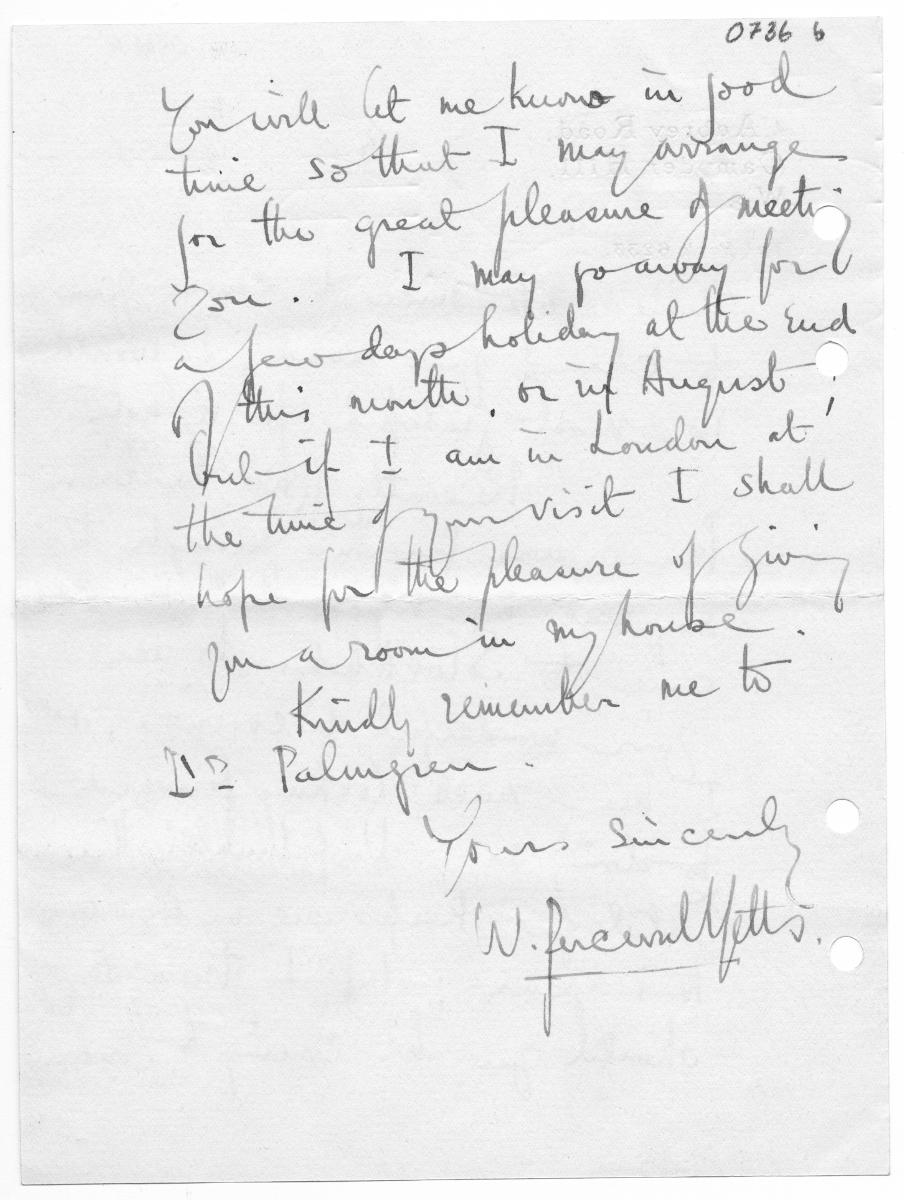 0736 b
You will let me know in good
time so that I may arrange
for the great pleasure of meeting
you. I may go away for
a few days holiday at the end
of this month, or in August;
but if I am in London at
the time of your visit I shall
hope for the pleasure of giving
you a room in my house.
Kindly remember me to
Dr Palmgren.
Yours sincerely
W. Perceval Yetts.